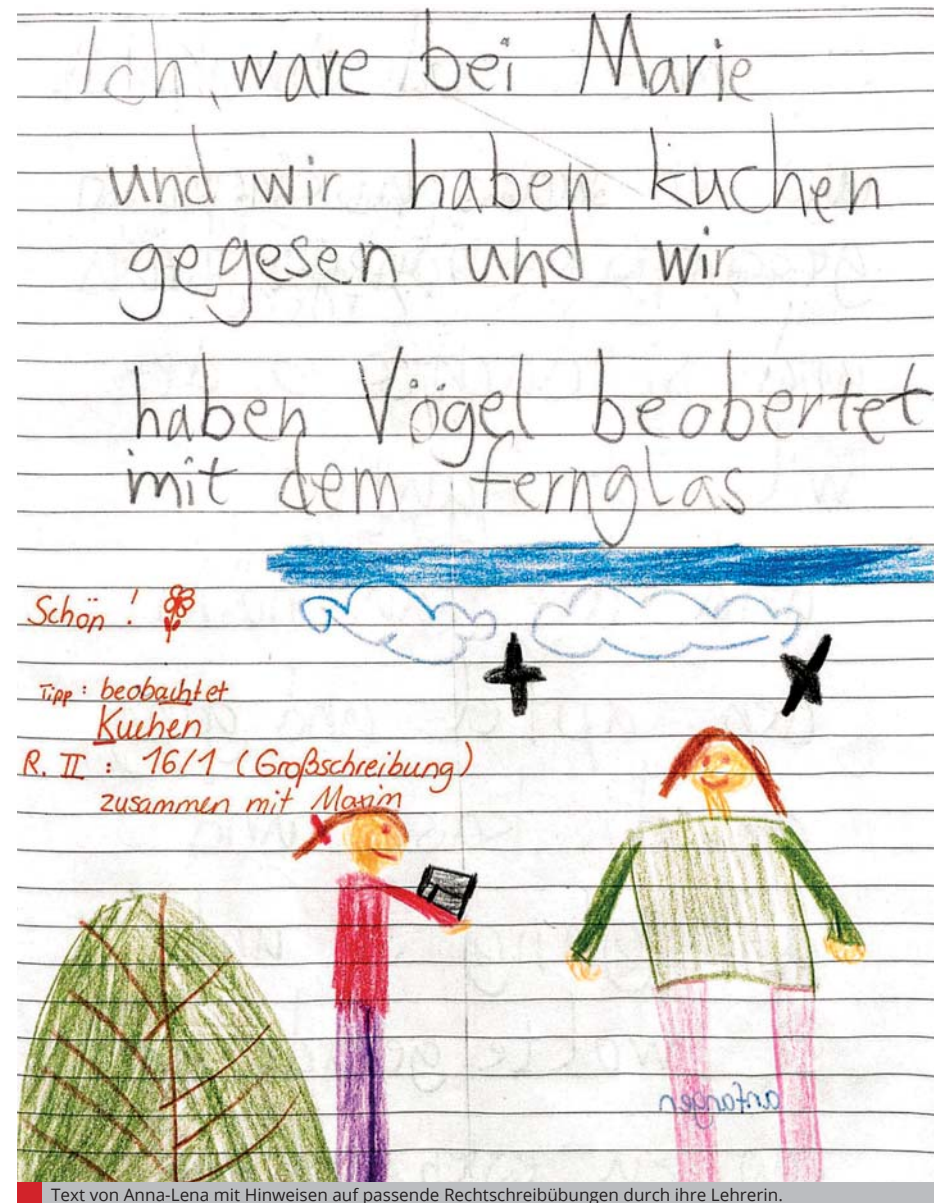 Ich ware bei Marie
und wir haben kuchen
gegesen und wir
haben Vögel beobertet
mit dem fernglas
Schön!
Tipp: beobachtet
Kuchen
R. II: 16/1 (Großschreibung)
zusammen mit Maxim
anfangen
Text von Anna-Lena mit Hinweisen auf passende Rechtschreibübungen durch ihre Lehrerin.